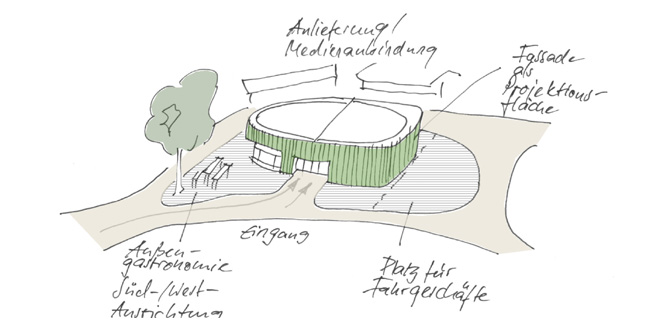 Anlieferung/
Medienanbindung
Fassade
als
Projektions-
fläche
Eingang
Außen-
gastronomie
Süd-/West-
Ausrichtung
Platz für
Fahrgeschäfte